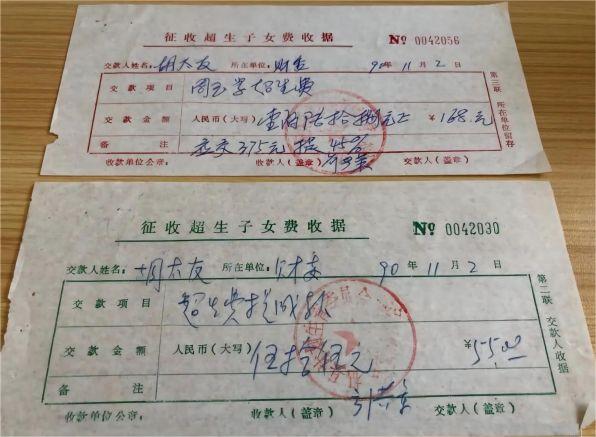 征收超生子女费收据 № 0042056
交款人姓名：胡太友 所在单位： 90年11月2日
交款项目
交款金额 人民币（大写）壹佰陆拾捌元正 ￥168.元
备注 应交375元按45%
收款单位公章： 收款人（盖章） 交款人（盖章）
第三联 所在单位留存
征收超生子女费收据 № 0042030
交款人姓名：胡太友 所在单位：财委 90年11月2日
交款项目 超生费
交款金额 人民币（大写）伍拾伍元 ￥55.00
备注
收款单位公章： 收款人（盖章） 交款人（盖章）
第二联 交款人收据